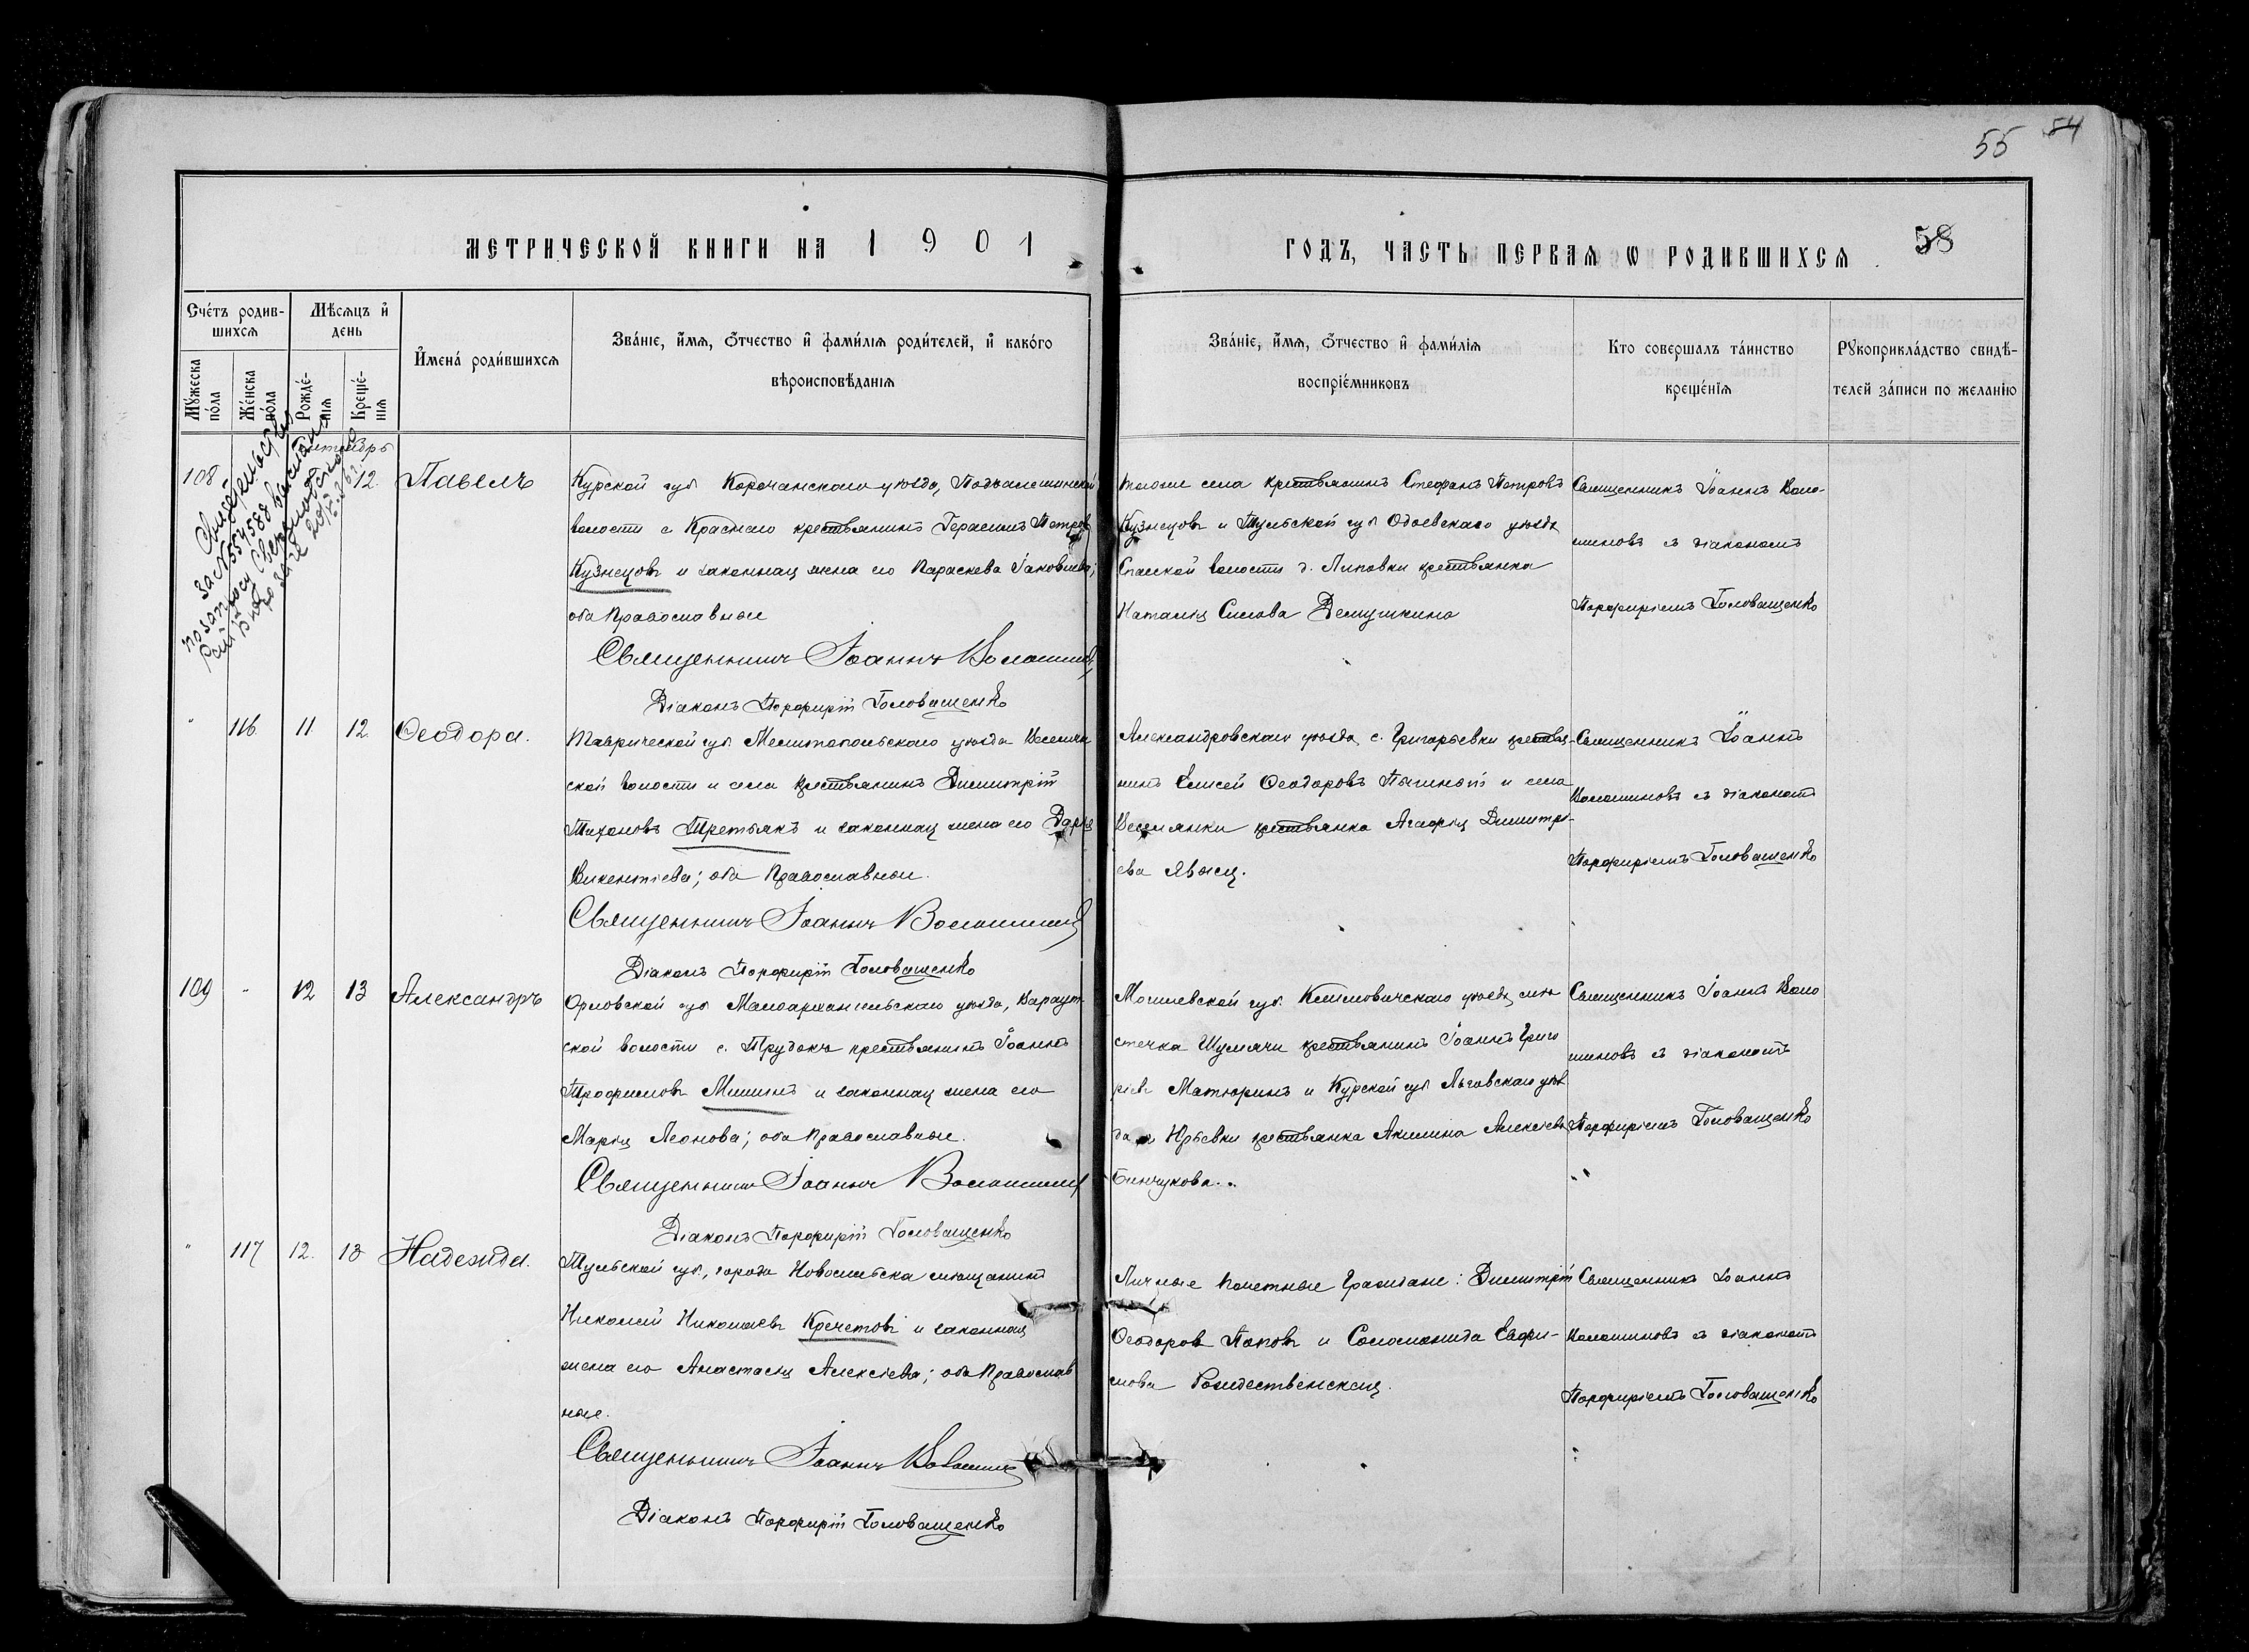 55 54
МЕТРИЧЕСКОЙ КНИГИ НА 1901
ГОДЪ, ЧАСТЬ ПЕРВАЯ Ѡ РОДИВШИХСЯ
58
Счётъ родив-
шихся
Мужеска
пола
Женска
пола
Мѣсяцъ и
день
Рожде-
нія
Креще-
нія
Имена родившихся
Званіе, имя, отчество и фамилія родителей, и какого
вѣроисповѣданія
Званіе, имя, отчество и фамилія
воспріемниковъ
Кто совершалъ таинство
крещенія
Рукоприкладство свидѣ-
телей записи по желанію
Свидѣтельство
за №554588
по запросу
108
12.
Павелъ
Курской губ Корочанскаго уѣзда,
волости с Краснаго крестьянинъ Герасимъ Петровъ
Кузнецовъ и законная жена его Параскева Іаковлева;
оба Православные
Священникъ Іоаннъ Волошиновъ
Діаконъ Порфирій Головащенко
тогоже села крестьянинъ Стефанъ Петровъ
Кузнецовъ и Тульской губ Одоевскаго уѣзда
Спасской волости д. Липовки крестьянка
Наталія Силова Демушкина
Священникъ Іоаннъ Воло-
шиновъ съ діакономъ
Порфиріемъ Головащенко
"
116
11
12.
Ѳеодора.
Таврической губ. Мелитопольскаго уѣзда Веселян
ской волости и села крестьянинъ Димитрій
Тихоновъ Третьякъ и законная жена его Дарія
Викентіева; оба Православные.
Священникъ Іоаннъ Волошиновъ
Діаконъ Порфирій Головащенко
Александровскаго уѣзда, с. Григорьевки крестья-
нинъ Елисей Ѳеодоровъ и села
Веселянки крестьянка Агафія Димитрі-
ева
Священникъ Іоаннъ
Волошиновъ съ діакономъ
Порфиріемъ Головащенко
109
"
12
13
Александръ
Орловской губ Малоархангельскаго уѣзда,
ской волости с. Трудокъ крестьянинъ Іоаннъ
Трофимовъ Мишинъ и законная жена его
Марія Леонова; оба Православные.
Священникъ Іоаннъ Волошиновъ
Діаконъ Порфирій Головащенко
Могилевской губ. Климовичскаго уѣзда мѣ
стечка Шумячи крестьянинъ Іоаннъ Григо
ріевъ Матюринъ и Курской губ Льговскаго уѣз
да Юрьевки крестьянка Акилина Алексіева
Бинчукова.
Священникъ Іоаннъ Воло
шиновъ съ діакономъ
Порфиріемъ Головащенко
"
117
12.
13
Надежда.
Тульской губ., города Новосильска мѣщанинъ
Николай Николаевъ Кречетовъ и законная
жена его Анастасія Алексіева; оба Православ
ные.
Священникъ Іоаннъ Волошиновъ
Діаконъ Порфирій Головащенко
Личные почетные граждане: Димитрій
Ѳеодоровъ Поповъ и Соломонида Евфи-
мова Рождественская.
Священникъ Іоаннъ
Волошиновъ съ діакономъ
Порфиріемъ Головащенко